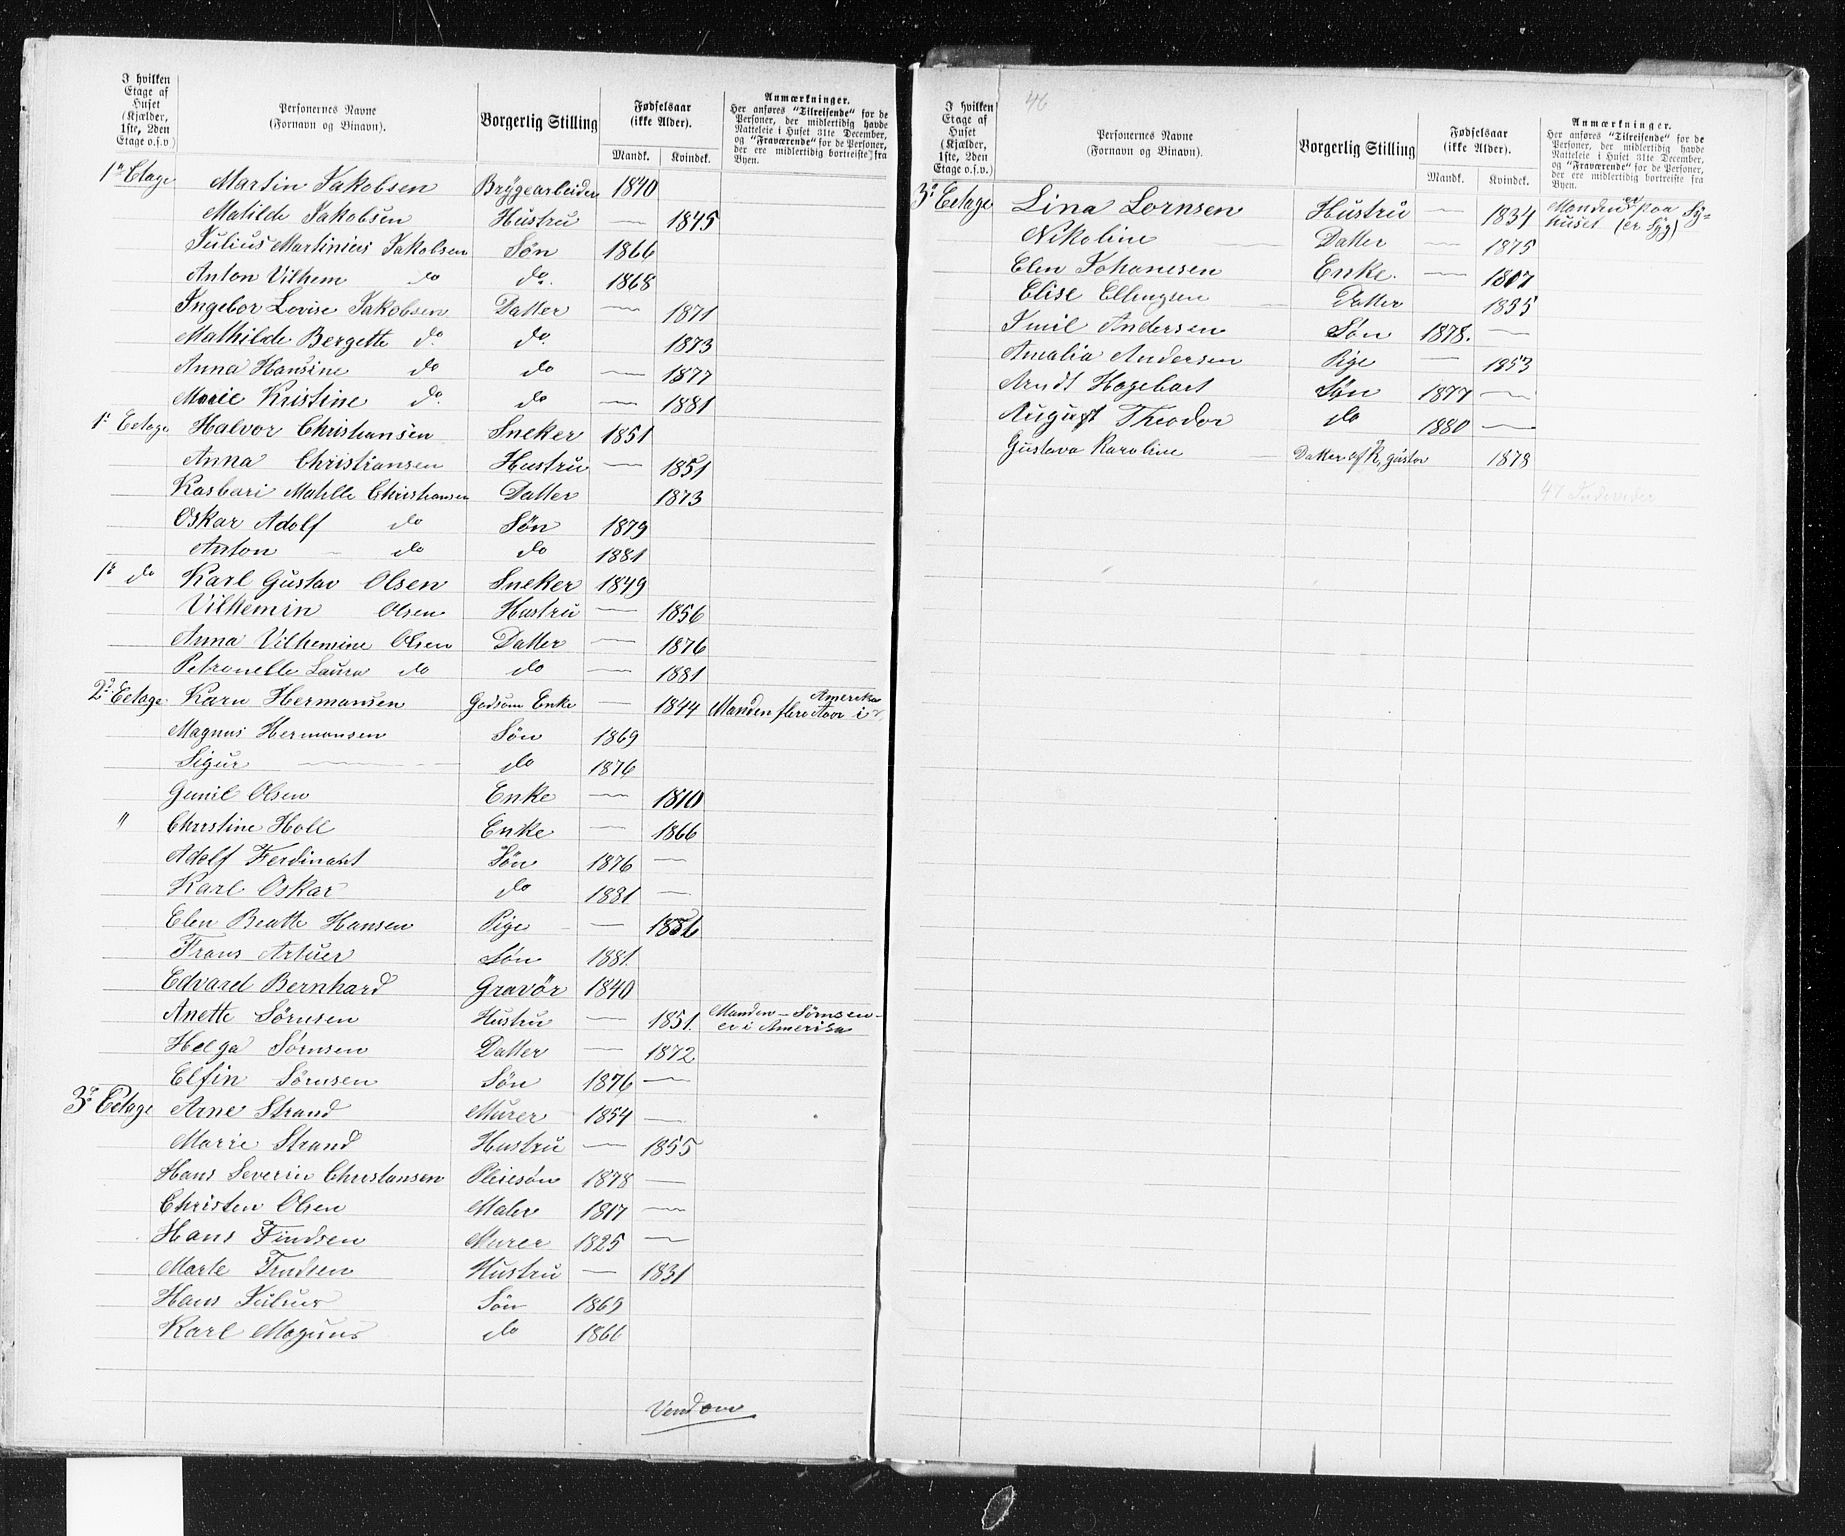 I hvilken Etage af Huset (Kjælder, 1ste, 2den Etage o.s.v)
Personernes Navne (Fornavn og Binavn).
Borgerlig Stilling
Fødselsaar (ikke Alder).
Mandk. Kvindek.
Anmærkninger.
Her anføres "Tilreisende" for de Personer, der midlertidig havde Natteleie i Huset 31te December, og "Fraværende" for de Personer, der ere midlertidig bortreiste fra Byen.
1ª Etage Martin Jakobsen Brygearbeider 1840
Matilde Jakobsen Hustru — 1845
Julius Martinius Jakobsen Søn 1866
Anton Vilhem do do. 1868
Ingebor Lovise Jakobsen Datter — 1871
Mathilde Bergette do. do. 1873
Anna Hansine do do — 1877
Marie Kristine do. do — 1881
1ª Eetage Halvor Christiansen Sneker 1851
Anna Christiansen Hustru — 1851
Kasbari Matille Christiansen Datter 1873
Oskar Adolf do Søn 1879
Anton do do 1881
1ª do Karl Gustav Olsen Sneker 1849
Vilhemin Olsen Hustru — 1856
Anna Vilhemine Olsen Datter — 1876
Petronelle Laura do do — 1881
2ª Eetage Karn Hermansen Gadsom Enke — 1844 Manden flere Aar i Amerika
Magnus Hermansen Søn 1869
Sigur — do 1876
Gunil Olsen Enke — 1810
" Christine Holl Enke — 1866
Adolf Ferdinant Søn 1876 —
Karl Oskar do 1881 —
Elen Beatte Hansen Pige — 1856
Frans Artuer Søn 1881.
Edvard Bernhard Gravør 1840
Anette Sørnsen Hustru — 1851. Manden — Sørnsen — er i Amerika
Helga Sørnsen Datter — 1872
Elfin Sørnsen Søn 1876 —
3ª Eetage Arne Strand Murer 1854 —
Marie Strand Hustru — 1855
Hans Severin Christansen Pleiesøn 1878 —
Christen Olsen Maler 1817 —
Hans Findsen Murer 1825 —
Marte Findsen Hustru — 1831
Hans Julius Søn 1869
Karl Magnus do 1866
Vend om
46
I hvilken Etage af Huset (Kjælder, 1ste, 2den Etage o.s.v.)
Personernes Navne (Fornavn og Binavn).
Borgerlig Stilling
Fødselsaar (ikke Alder).
Mandk. Kvindek.
Anmærkninger.
Her anføres "Tilreisende" for de Personer, der midlertidig havde Natteleie i Huset 31te December, og "Fraværende" for de Personer, der ere midlertidig bortreiste fra Byen.
3ª Eetage Lina Lornsen Hustru — 1834 Manden er paa Sy=huset (er Syg)
Nikoline — Datter — 1875
Elen Johanesen Enke. — 1807
Elise Ellingsen — Datter 1835
Imil Andersen Søn 1878. —
Amalia Andersen Pige — 1853
Arndt Hagebart Søn 1877 —
August Theodor do 1880 —
Gustava Karoline — Datter af K, gustav 1878